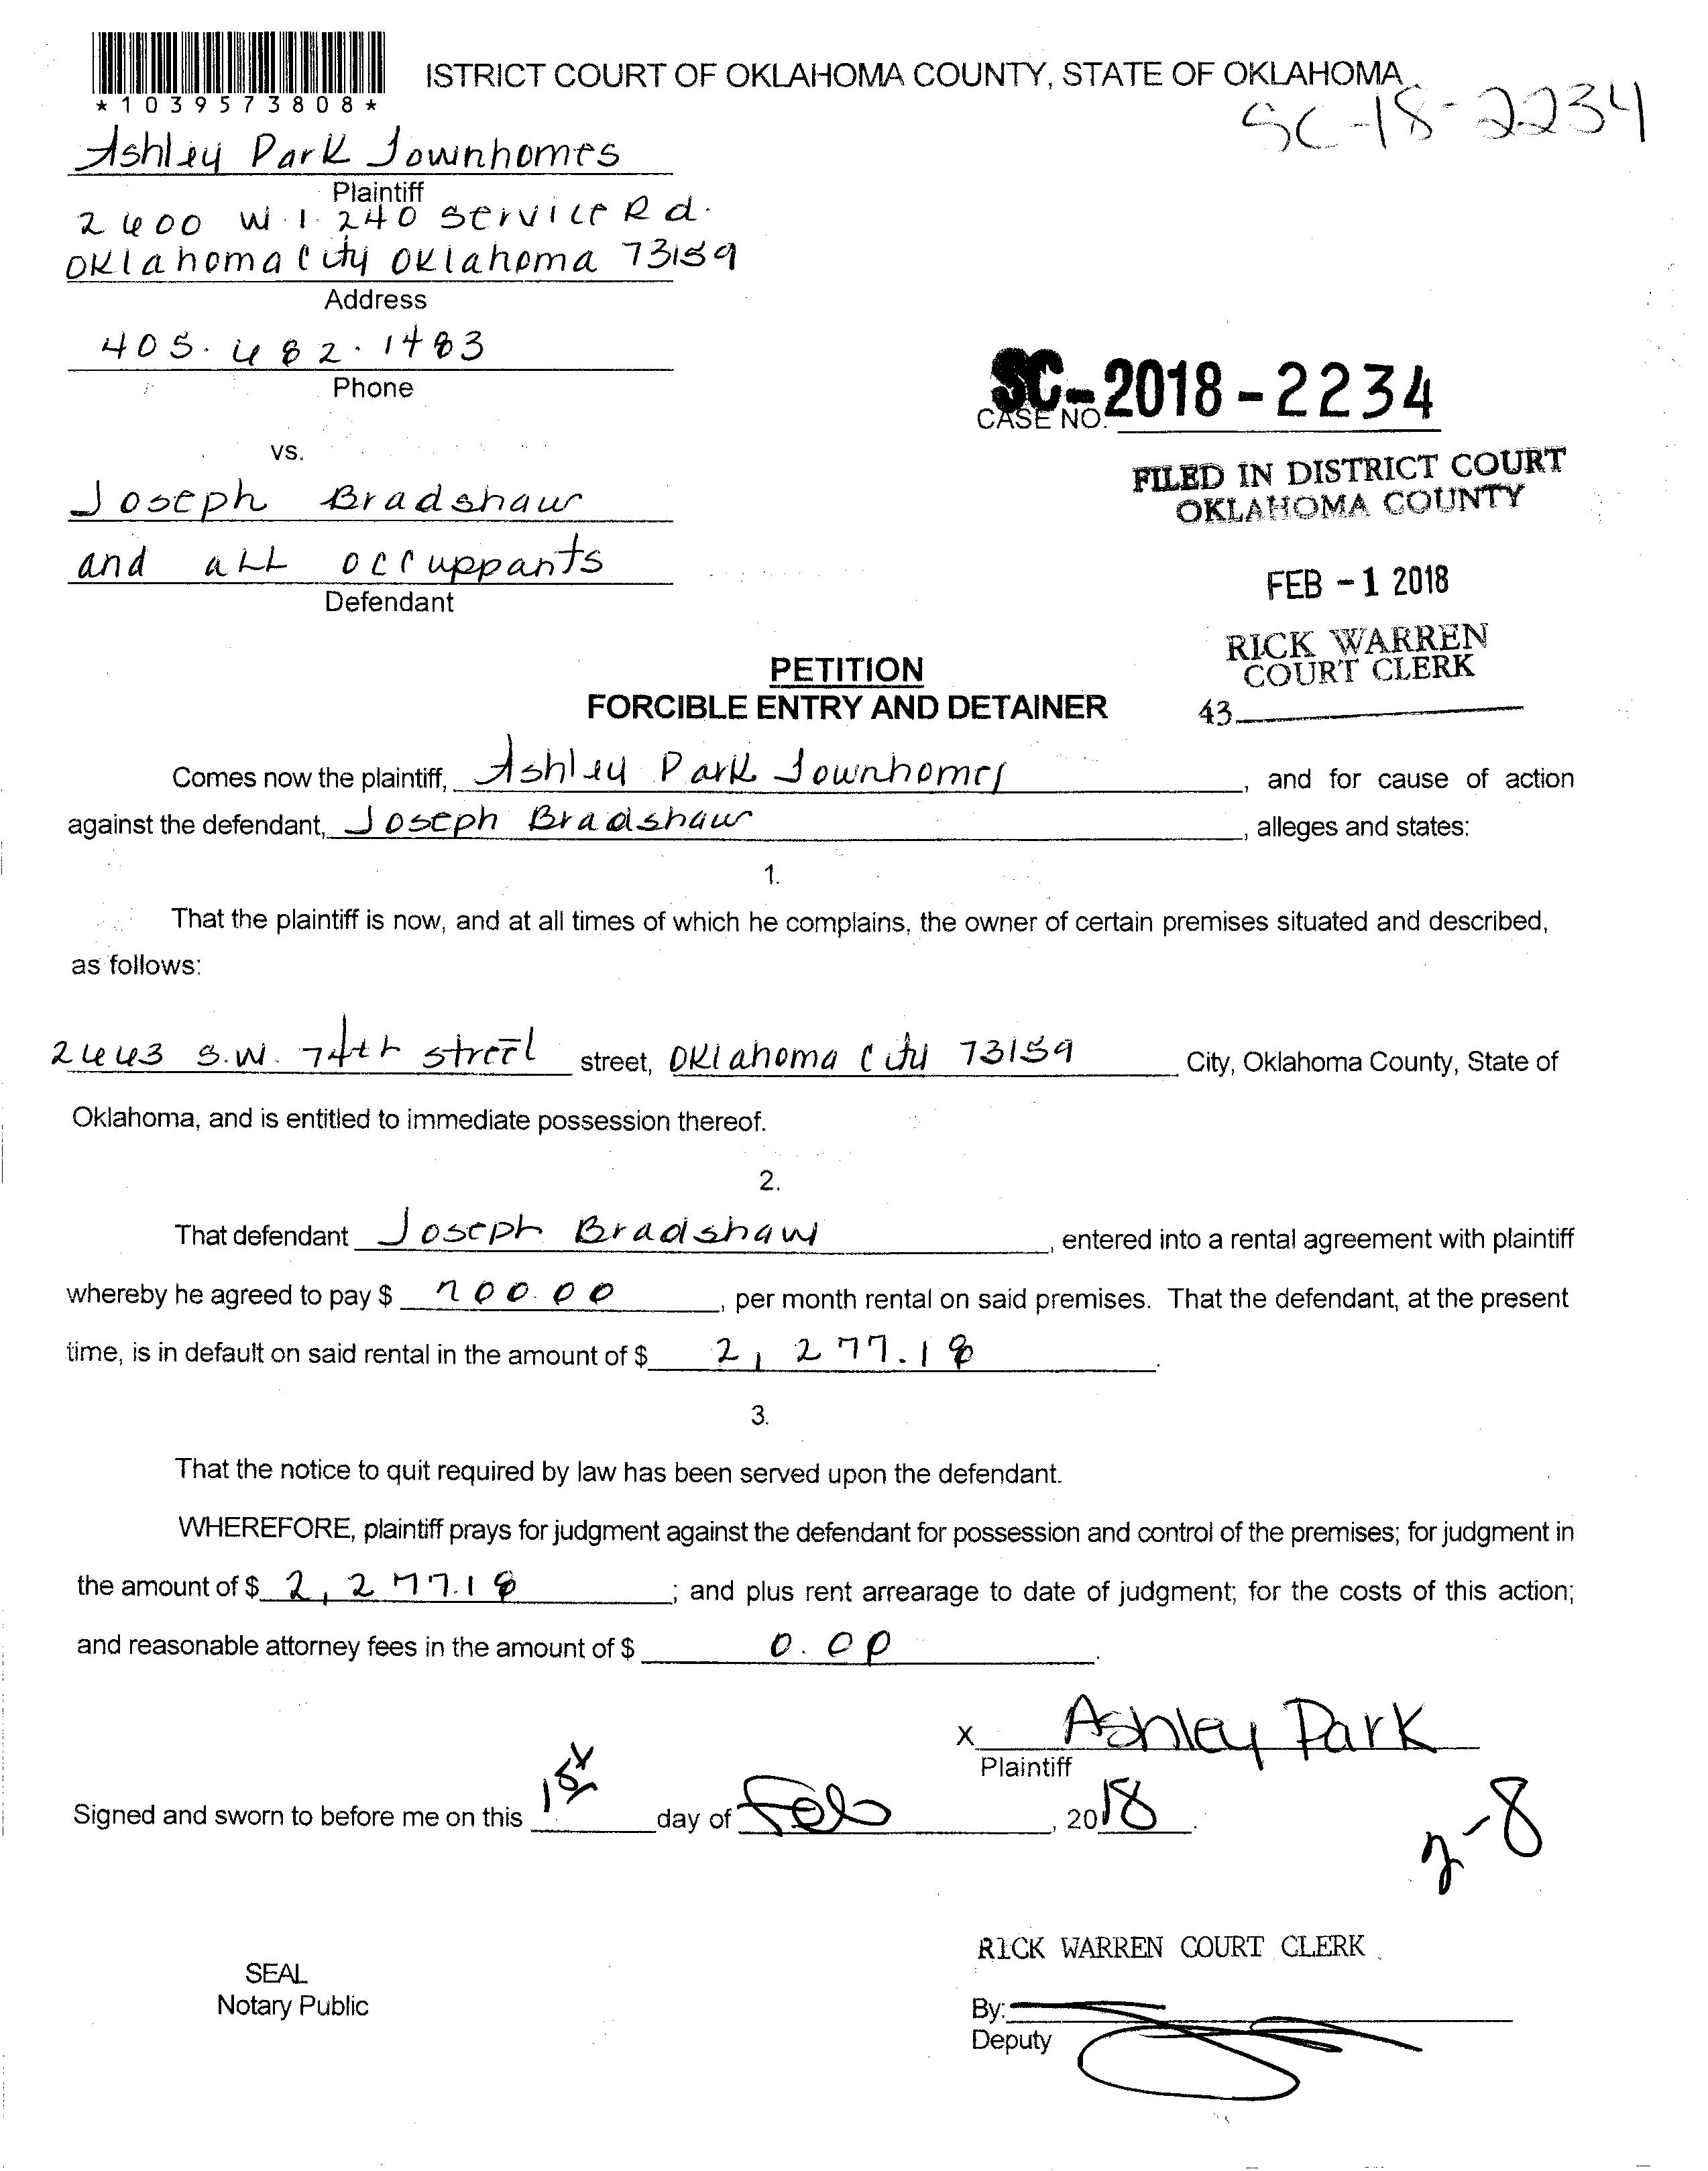 *1039573808*
ISTRICT COURT OF OKLAHOMA COUNTY, STATE OF OKLAHOMA
SC-18-2234
Ashley Park Townhomes
Plaintiff
2600 W. I. 240 Service Rd.
Oklahoma City Oklahoma 73159
Address
405.682.1483
Phone
SC-2018-2234
CASE NO.
vs.
FILED IN DISTRICT COURT
OKLAHOMA COUNTY
Joseph Bradshaw
and aLL occuppants
Defendant
FEB -1 2018
RICK WARREN
COURT CLERK
43
PETITION
FORCIBLE ENTRY AND DETAINER
Comes now the plaintiff, Ashley Park Townhomes, and for cause of action
against the defendant, Joseph Bradshaw, alleges and states:
1.
That the plaintiff is now, and at all times of which he complains, the owner of certain premises situated and described,
as follows:
2643 S.W. 74th street street, Oklahoma City 73159 City, Oklahoma County, State of
Oklahoma, and is entitled to immediate possession thereof.
2.
That defendant Joseph Bradshaw, entered into a rental agreement with plaintiff
whereby he agreed to pay $ 700.00, per month rental on said premises. That the defendant, at the present
time, is in default on said rental in the amount of $ 2,277.18.
3.
That the notice to quit required by law has been served upon the defendant.
WHEREFORE, plaintiff prays for judgment against the defendant for possession and control of the premises; for judgment in
the amount of $ 2,277.18; and plus rent arrearage to date of judgment; for the costs of this action;
and reasonable attorney fees in the amount of $ 0.00.
x Ashley Park
Plaintiff
Signed and sworn to before me on this 1st day of Feb, 2018.
2-8
RICK WARREN COURT CLERK
SEAL
Notary Public
By:
Deputy